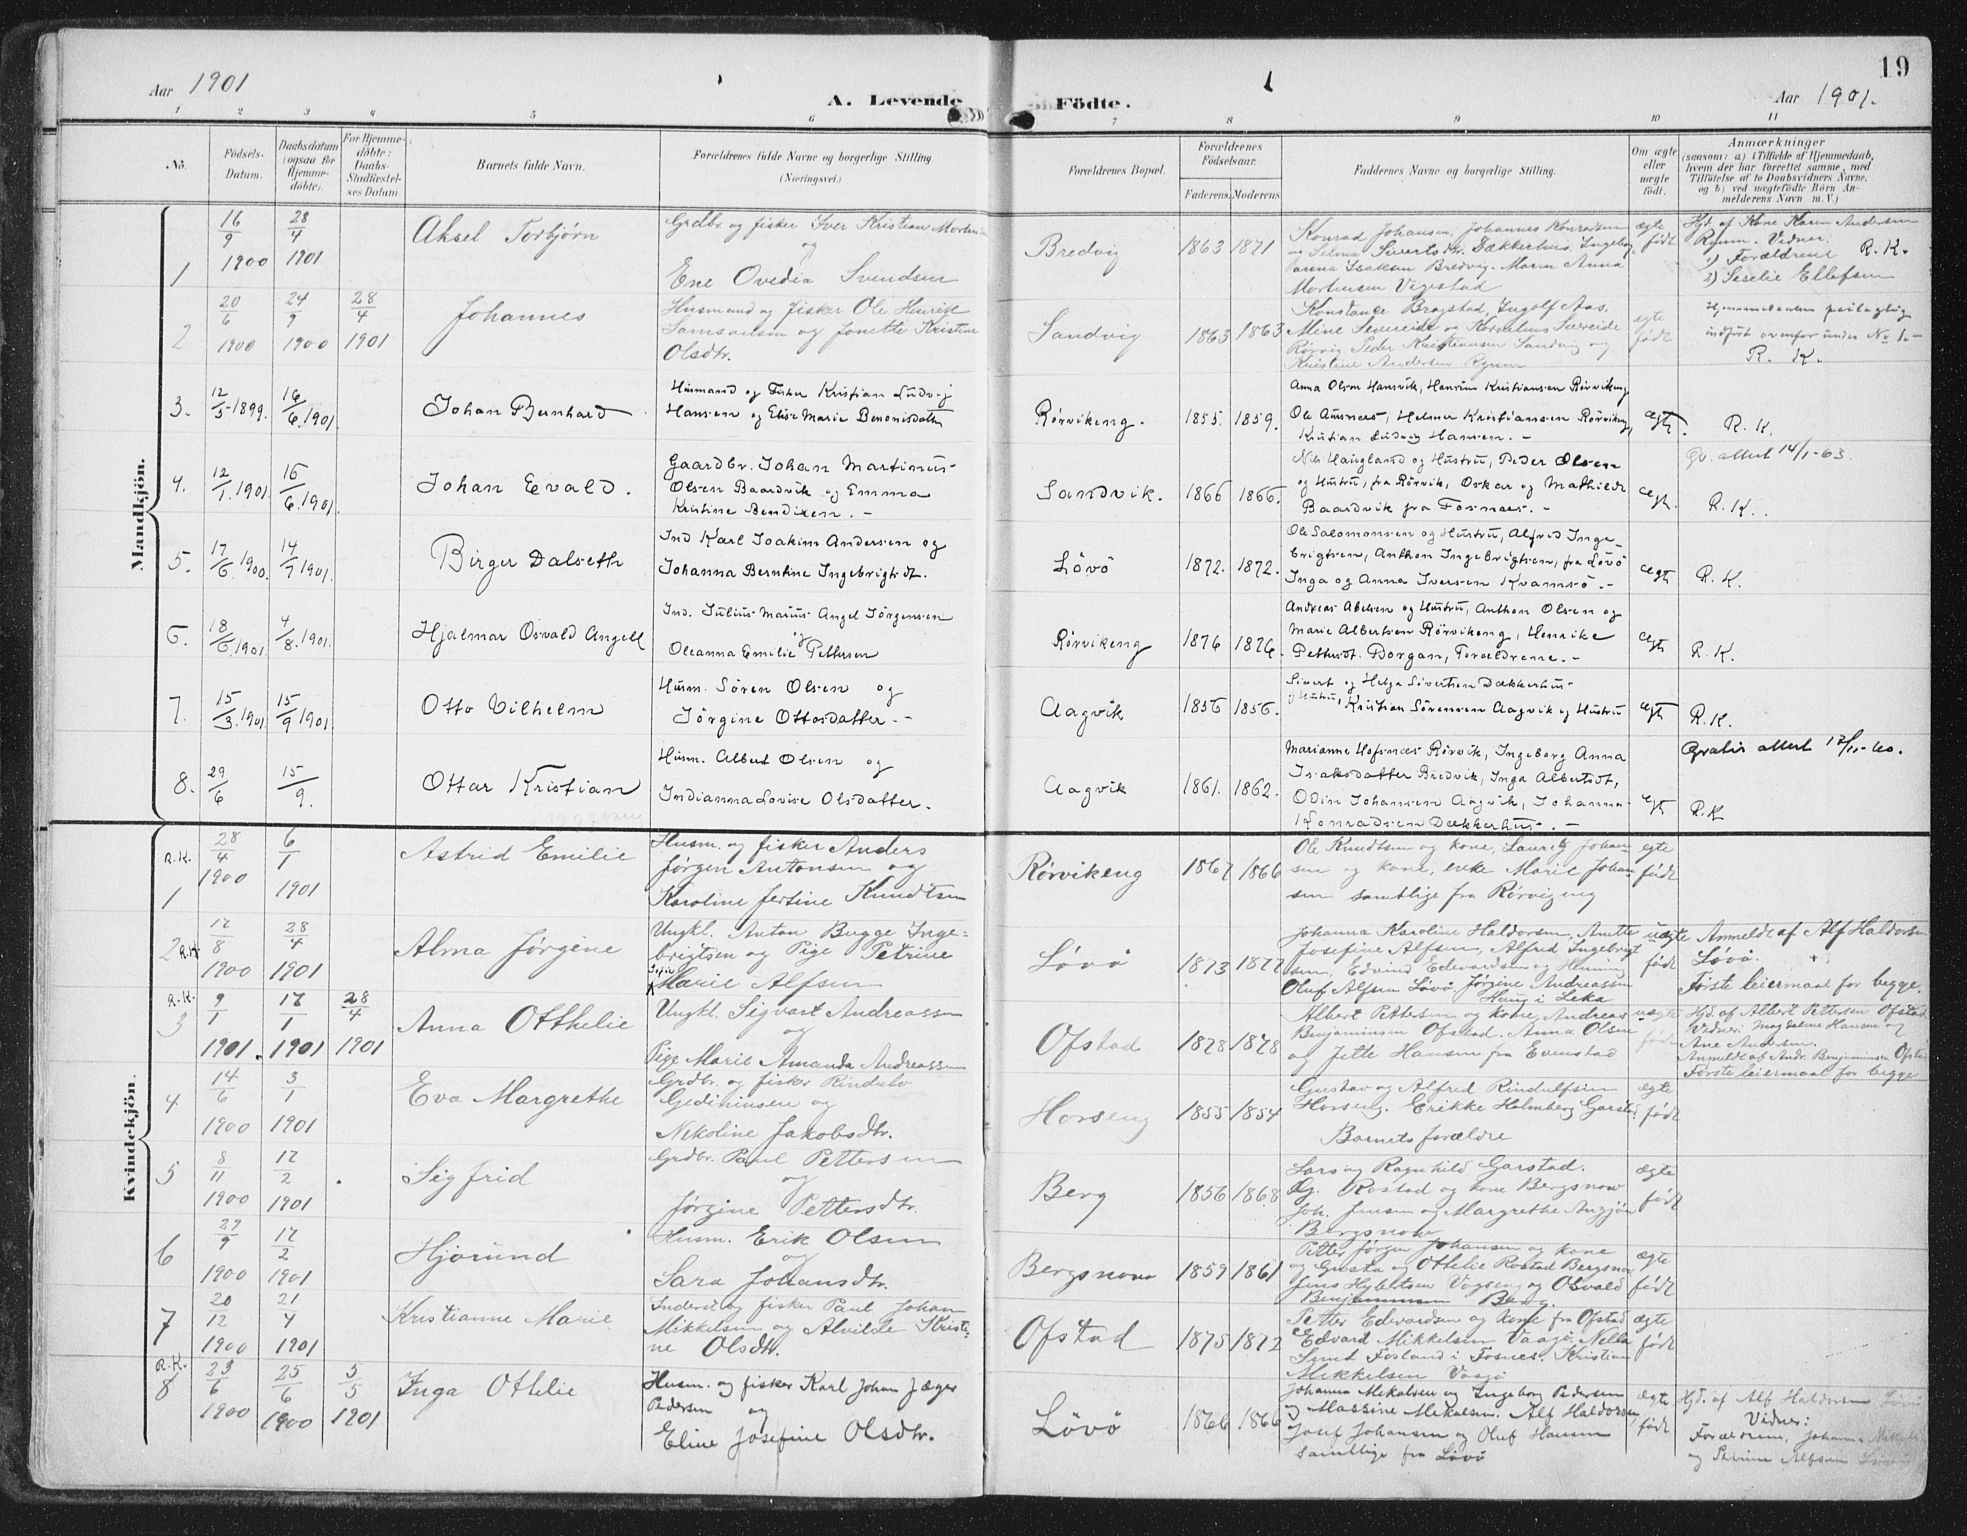 19
Aar 1901
A. Levende Födte.
Aar 1901.
1 2 3 4 5 6 7 8 9 10 11
No.
Födsels-
Datum.
Daabsdatum
(ogsaa for
Hjemme-
döbte).
For Hjemme-
döbte:
Daabs-
Stadfæstel-
ses Datum.
Barnets fulde Navn.
Forældrenes fulde Navne og borgerlige Stilling
(Næringsvei.)
Forældrenes Bopæl.
Forældrenes
Födselsaar.
Faderens. Moderens.
Faddernes Navne og borgerlige Stilling.
Om ægte
eller
uægte
födt.
Anmærkninger
(saasom: a) i Tilfælde af Hjemmedaab,
hvem der har forrettet samme, med
Tilföielse af to Daabsvidners Navne,
og b) ved uægtefödte Börn An-
melderens Navn m. V.)
Mandkjön.
1
16/9 1900
28/4 1901
Aksel Torbjørn
Grdbr. og fisker Iver Kristian
og
Ene Ovedia Svendsen
Bredvig
1863 1871
Konrad Johansen, Johannes Konradsen
og Selma Sivertsdtr. Dækkerhus, Ingeborg
Anna Isaksen Bredvig. Maren Anna
Mortensen Vigestad
ægte
født
Hjd. af Kone Karen Andersen
Ryum. Vidner:
1) Forældrene R. K.
2) Seselie Ellefsen
2
20/6 1900
24/9 1900
28/4 1901
Johannes
Husmand og fisker Ole Henrik
Samsonsen og Jonette Kristine
Olsdtr.
Sandvig
1863 1863
Konstance Bragstad, Ingolf Aas,
Mine Severeide og Kornelius Sævereide
Rørvig, Peder Kristiansen Sandvig og
Kristine Andersen Ryum
ægte
født
Hjemmedaaben
indført ovenfor under No 1.-
R. K.
3.
12/5-1899.
16/6 1901.
Johan Bernhard
Husmand og Fisker Kristian Ludvig
Hansen og Elise Marie Benonisdatter
Rørvikeng.
1855. 1859.
Anna Olsen Hansvik, Hansine Kristiansen Rørvikeng
Ole Aursnes, Helmer Kristiansen Rørvikeng,
Kristian Ludvig Hansen. -
ægte.
R. K.
4.
12/1.1901
16/6.1901.
Johan Evald.
Gaardbr. Johan Martinus
Olsen Baardvik og Emma
Kristine Bendixen. -
Sandvik.
1866 1866.
Nils Haugland og Hustru, Peder Olsen
og Hustru, fra Rørvik, Oskar og Mathilde
Baardvik fra Fosnaes. -
ægte.
attest 14/1-63.
R. K.
5.
17/6.1900.
14/7 1901.
Birger Dalseth
Ind Karl Joakim Andersen og
Johanna Berntine Ingebrigtsdt.
Løvø
1872. 1872.
Ole Salomonsen og Hustru, Alfred Inge-
brigtsen, Anthon Ingebrigtsen, fra Løvø
Inga og Anna Iversen Kvamsø. -
ægte
R. K.
6.
18/6.1901
4/8.1901.
Hjalmar Osvald Angell
Ind. Julius Marius Angel Jörgensen
og
Oleanna Emilie Pettersen
Rørvikeng
1876 1876.
Andreas Abelsen og Hustru, Anthon Olsen og
Marie Albertsen Rørvikeng, Henrike
Pettersdt. Dorgan, Forældrene. -
ægte
R. K.
7.
15/3.1901
15/9 1901.
Otto Vilhelm
Husm. Sören Olsen og
Jörgine Ottosdatter. -
Aagvik
1856 1856.
Sivert og Helga Sivertsen Dækkerhus-
og Hustru, Kristian Sörensen Aagvik og Hustru
ægte
R. K.
8.
29/6
15/9.
Ottar Kristian
Husm. Albert Olsen og
Indianna Lovise Olsdatter.
Aagvik
1861. 1862.
Marianne Hofsnaes Rørvik, Ingeborg Anna
Isaksdatter Bredvik, Inga Albertsdt,
Odin Johansen Aagvik, Johanna
Konradsen Dækkerhus. -
ægte
Gratis attest 12/11-60.
R. K
Kvindekjön.
R. K.
1
28/4 1900
6/1 1901
Astrid Emilie
Husm. og fisker Anders
Jørgen Antonsen og
Karoline Jertine Knudtsen
Rørvikeng
1867 1866
Ole Knudtsen og kone, Lauritz Johan-
sen og kone, enke Marie Johan
sen samtlige fra Rørvigeng
ægte
født
2 R.K
12/8 1900
28/4 1901
Alma Jørgine
Ungkl. Anton Bugge Inge-
brigtsen og Pige Petrine
Marie Alfsen
Løvø
1873 1877
Johanna Karoline Haldorsen, Anette
Josefine Alfsen, Alfred Ingebrigt
sen, Edvind Edevardsen og Henning
Oluf Alfsen Løvø, Jørgine Andreassen
Haug i Leka
uægte
født
Anmeldt af Alf Haldorsen
Løvø.
Første leiermaal for begge.
R. K.
3
9/1 1901.
17/1 1901
28/4 1901
Anna Otthelie
Ungkl. Sigvart Andreassen
og
Pige Marie Amanda Andreassen
Ofstad
1878 1878
Albert Pettersen og kone, Andreas
Benjaminsen Ofstad. Anna Olsen
og Jette Hansen fra Evenstad
uægte
født
Hjd. af Albert Pettersen Ofstad
Vidner: Magdalene Hansen og
Ane Andersen.
Anmeldt af Andr. Benjaminsen Ofstad
Første leiermaal for begge
4
14/6 1900
3/1 1901
Eva Margrethe
Grdbr. og fisker Rindulv
Gedeminsen og
Nikoline Jakobsdtr.
Horseng
1855 1854
Gustav og Alfred Rindulfsen
Horseng. Erikke Holmberg Garstad
Barnets forældre
ægte
født
5
8/11 1900
17/2 1901
Sigfrid
Grdbr. Paul Pettersen
og
Jørgine Pettersdtr.
Berg
1856 1868
Lars og Ragnhild Garstad.
Og. Rostad og kone Bergsnov
Joh. Jensen og Margrethe
Bergsnov
ægte
født
6
27/9 1900
17/2 1901
Hjørund
Husm. Erik Olsen
og
Sara Johansdtr.
Bergsnov
1859 1861
Petter Jørgen Johansen og kone
og Gusta og Ottelie Rostad Bergsnov
Jens Hybertsen Vogseng og Osvald
Benjaminsen Berg
ægte
født
7
20/12 1900
21/4 1901
Kristianne Marie
Inderst og fisker Paul Johan
Mikkelsen og Alvilde Kristi-
ne Olsdtr.
Ofstad
1875 1872
Petter Edevardsen og kone fra Ofstad
Edvard Mikkelsen Vaagø. Nella
Fosland i Fosnes. Kristian
Mikkelsen Vaagø
ægte
født
R. K.
8
23/6 1900
25/6 1900
5/5 1901
Inga Othelie
Husm. og fisker Karl Johan Jæger
Pedersen og
Eline Josefine Olsdtr.
Løvø
1866 1866
Johanna Mikalsen og Ingeborg Pedersen
og Massine Mikalsen. Alf Haldorsen
Josef Johansen og Oluf Hansen
samtlige fra Løvø
ægte
født
Hjd. af Alf Haldorsen Løvø
Vidner:
Forældrene, Johanna
og Petrine Alfsen